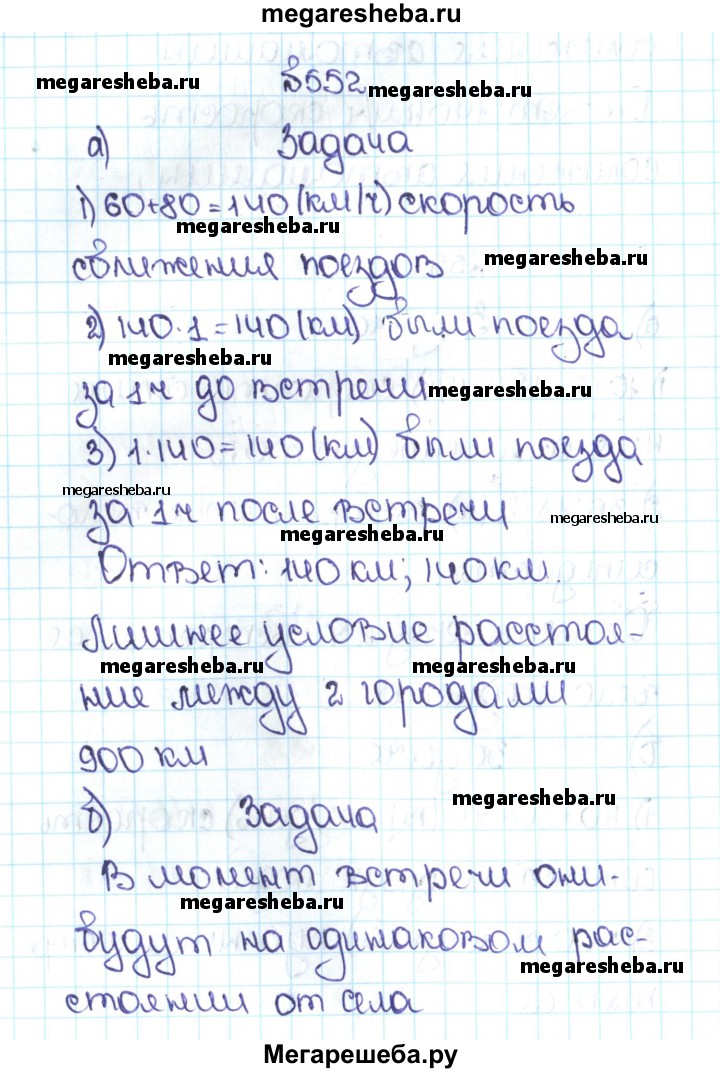 megaresheba.ru
№552
megaresheba.ru
megaresheba.ru
а) Задача
1) 60+80=140 (км/ч) скорость
megaresheba.ru
сближения поездов
megaresheba.ru
2) 140·1=140 (км) были поезда
megaresheba.ru
за 1ч до встречи
megaresheba.ru
3) 1·140=140 (км) были поезда
megaresheba.ru
за 1ч после встречи
megaresheba.ru
megaresheba.ru
Ответ: 140 км; 140 км.
Лишнее условие расстоя-
megaresheba.ru
megaresheba.ru
ние между 2 городами
900 км
б) Задача
megaresheba.ru
В момент встречи они
megaresheba.ru
будут на одинаковом рас-
megaresheba.ru
стоянии от села
Мегарешеба.ру